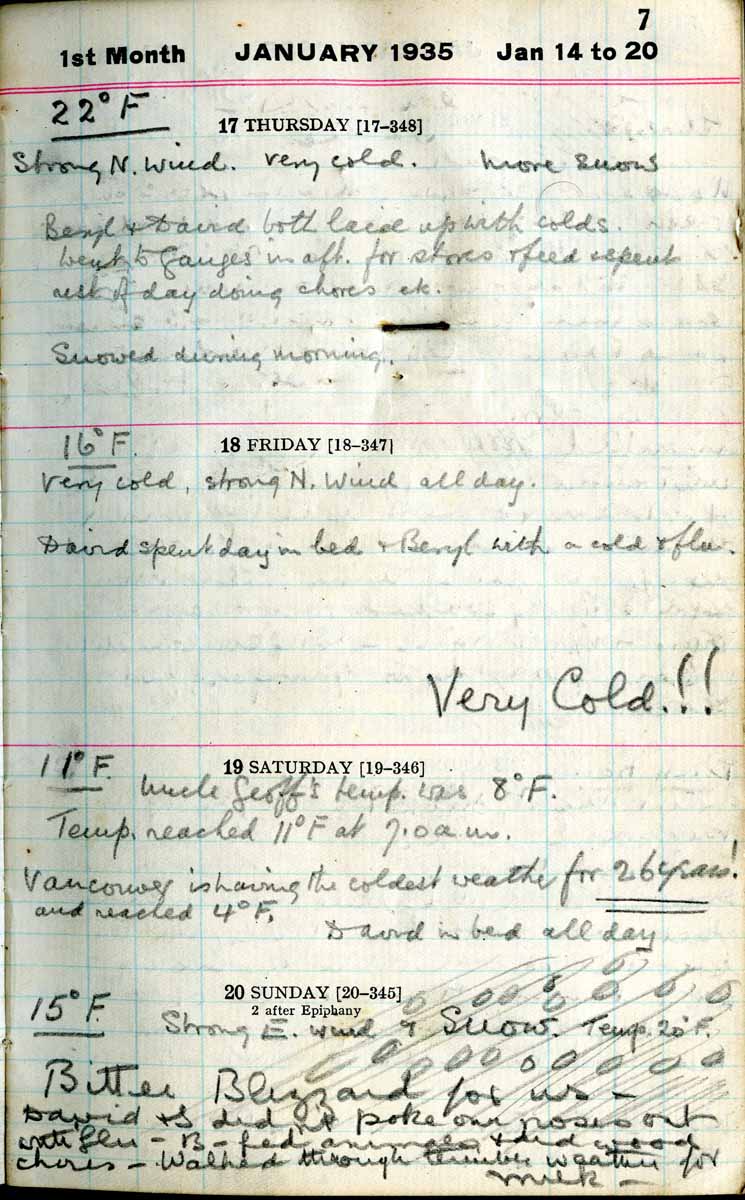 7
1st Month JANUARY 1935 Jan 14 to 20
22° F
17 THURSDAY [17–348]
Strong N. Wind. very cold. more snow
Beryl & David both laid up with colds.
Went to Ganges in aft. for stores & feed & spent
rest of day doing chores etc.
Snowed during morning.
16° F.
18 FRIDAY [18–347]
Very cold, strong N. Wind all day.
David spent day in bed & Beryl with a cold & flu.
Very Cold.!!
11° F.
19 SATURDAY [19–346]
Uncle Geoff's temp. was 8° F.
Temp. reached 11° F at 7.0 a.m.
Vancouver is having the coldest weather for 26 years!
and reached 4° F.
David in bed all day
15° F.
20 SUNDAY [20–345]
2 after Epiphany
Strong E. wind & Snow. Temp. 20° F.
Bitter Blizzard for us –
David & S did not poke our noses out
with flu – B – fed animals & did wood
chores – Walked through terrible weather for
milk –